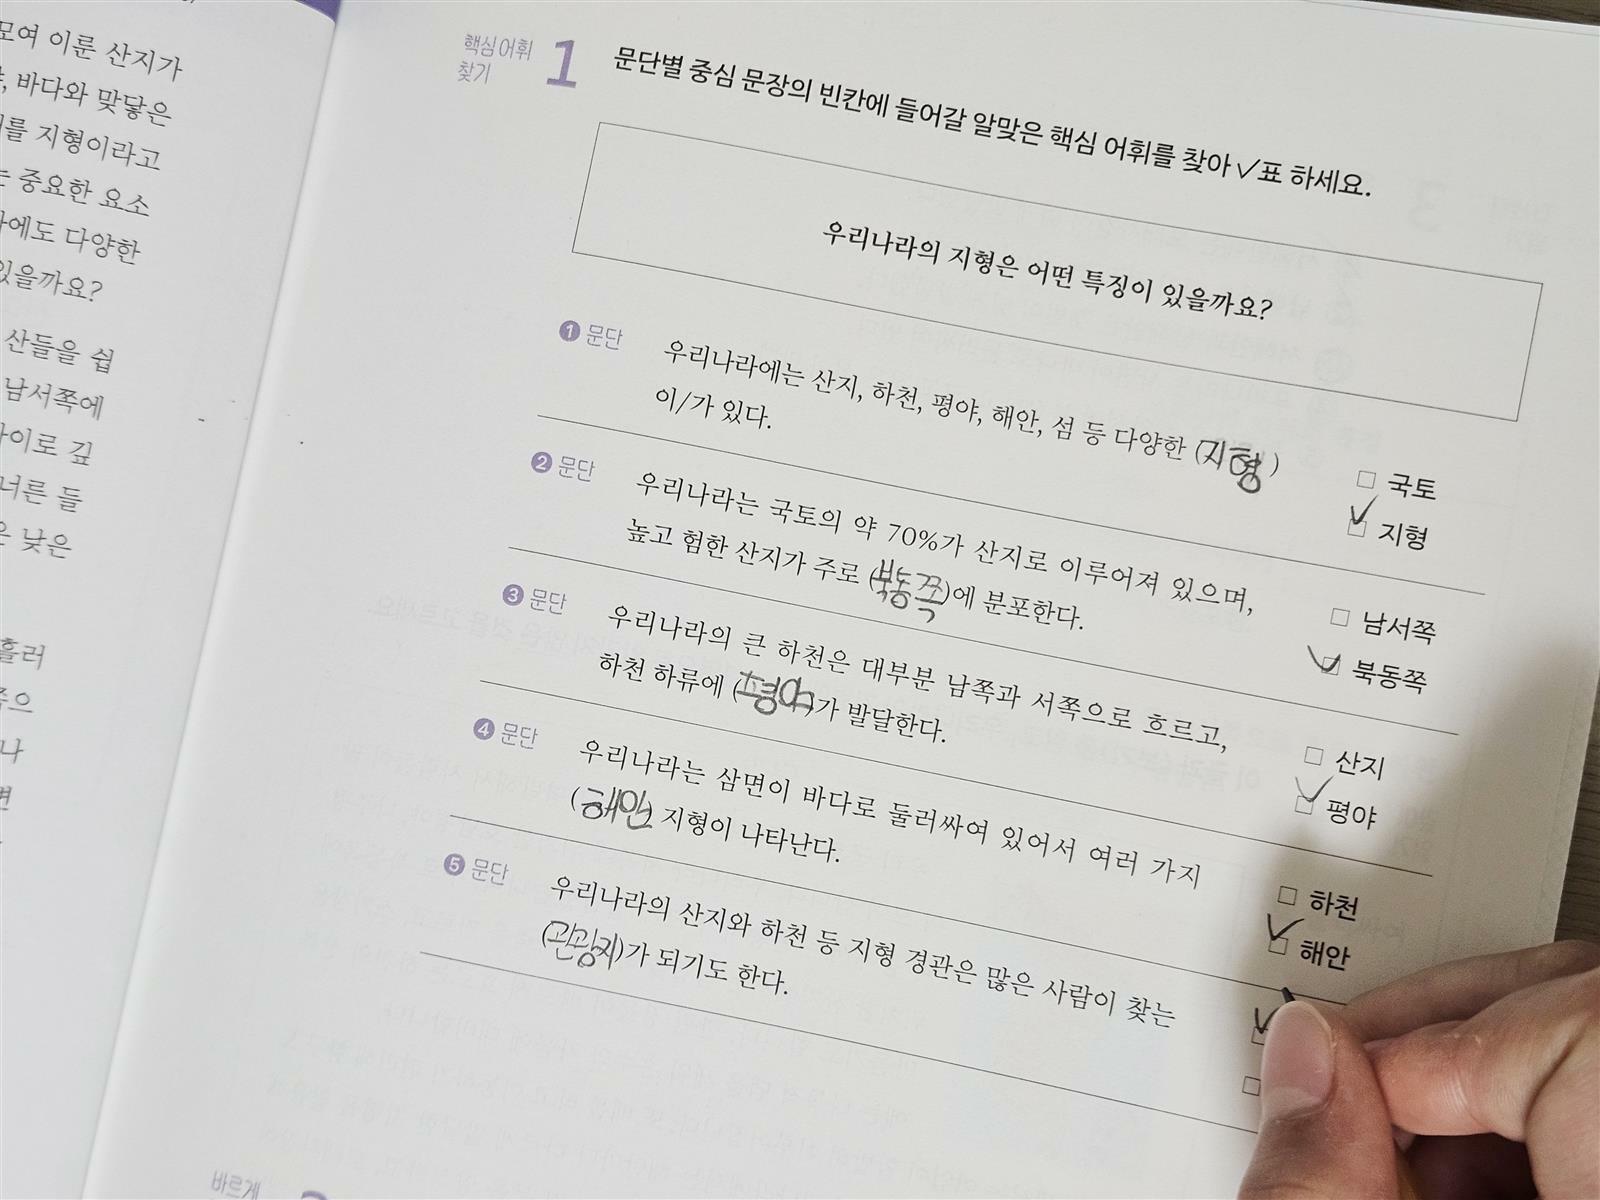 모여 이룬 산지가
바다와 맞닿은
를 지형이라고
중요한 요소
에도 다양한
있을까요?
산들을 쉽
남서쪽에
사이로 깊
너른 들
낮은
흘러
쪽으
나
면
핵심 어휘
찾기
1 문단별 중심 문장의 빈칸에 들어갈 알맞은 핵심 어휘를 찾아 ✓표 하세요.
우리나라의 지형은 어떤 특징이 있을까요?
❶ 문단 우리나라에는 산지, 하천, 평야, 해안, 섬 등 다양한 (지형)
이/가 있다.
□ 국토
☑ 지형
❷ 문단 우리나라는 국토의 약 70%가 산지로 이루어져 있으며,
높고 험한 산지가 주로 (북동쪽)에 분포한다.
□ 남서쪽
☑ 북동쪽
❸ 문단 우리나라의 큰 하천은 대부분 남쪽과 서쪽으로 흐르고,
하천 하류에 (평야)가 발달한다.
□ 산지
☑ 평야
❹ 문단 우리나라는 삼면이 바다로 둘러싸여 있어서 여러 가지
(해안) 지형이 나타난다.
□ 하천
☑ 해안
❺ 문단 우리나라의 산지와 하천 등 지형 경관은 많은 사람이 찾는
(관광지)가 되기도 한다.
바르게